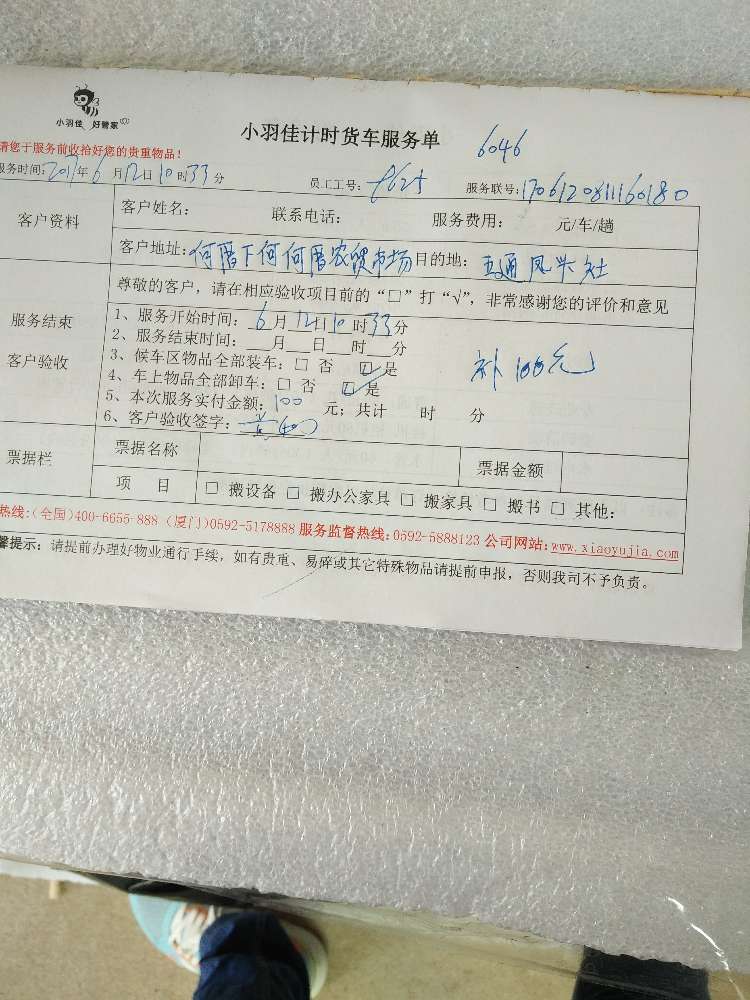 小羽佳 好管家
小羽佳计时货车服务单 6046
请您于服务前收拾好您的贵重物品!
服务时间:2017年6月12日10时33分 员工工号: 服务联号:170612081160180
客户资料
客户姓名: 联系电话: 服务费用: 元/车/趟
客户地址:何厝下何何厝农贸市场 目的地:五通凤头社
尊敬的客户，请在相应验收项目前的“□”打“√”，非常感谢您的评价和意见
服务结束
客户验收
1、服务开始时间:6月12日10时33分
2、服务结束时间:__月__日__时__分
3、候车区物品全部装车:□ 否 □ 是
4、车上物品全部卸车:□ 否 ☑ 是
补100元
5、本次服务实付金额:100 元；共计 时 分
6、客户验收签字:
票据栏
票据名称 票据金额
项 目 □ 搬设备 □ 搬办公家具 □ 搬家具 □ 搬书 □ 其他:
热线:(全国)400-6655-888 (厦门)0592-5178888 服务监督热线:0592-5888123 公司网站:www.xiaoyujia.com
馨提示: 请提前办理好物业通行手续，如有贵重、易碎或其它特殊物品请提前申报，否则我司不予负责。